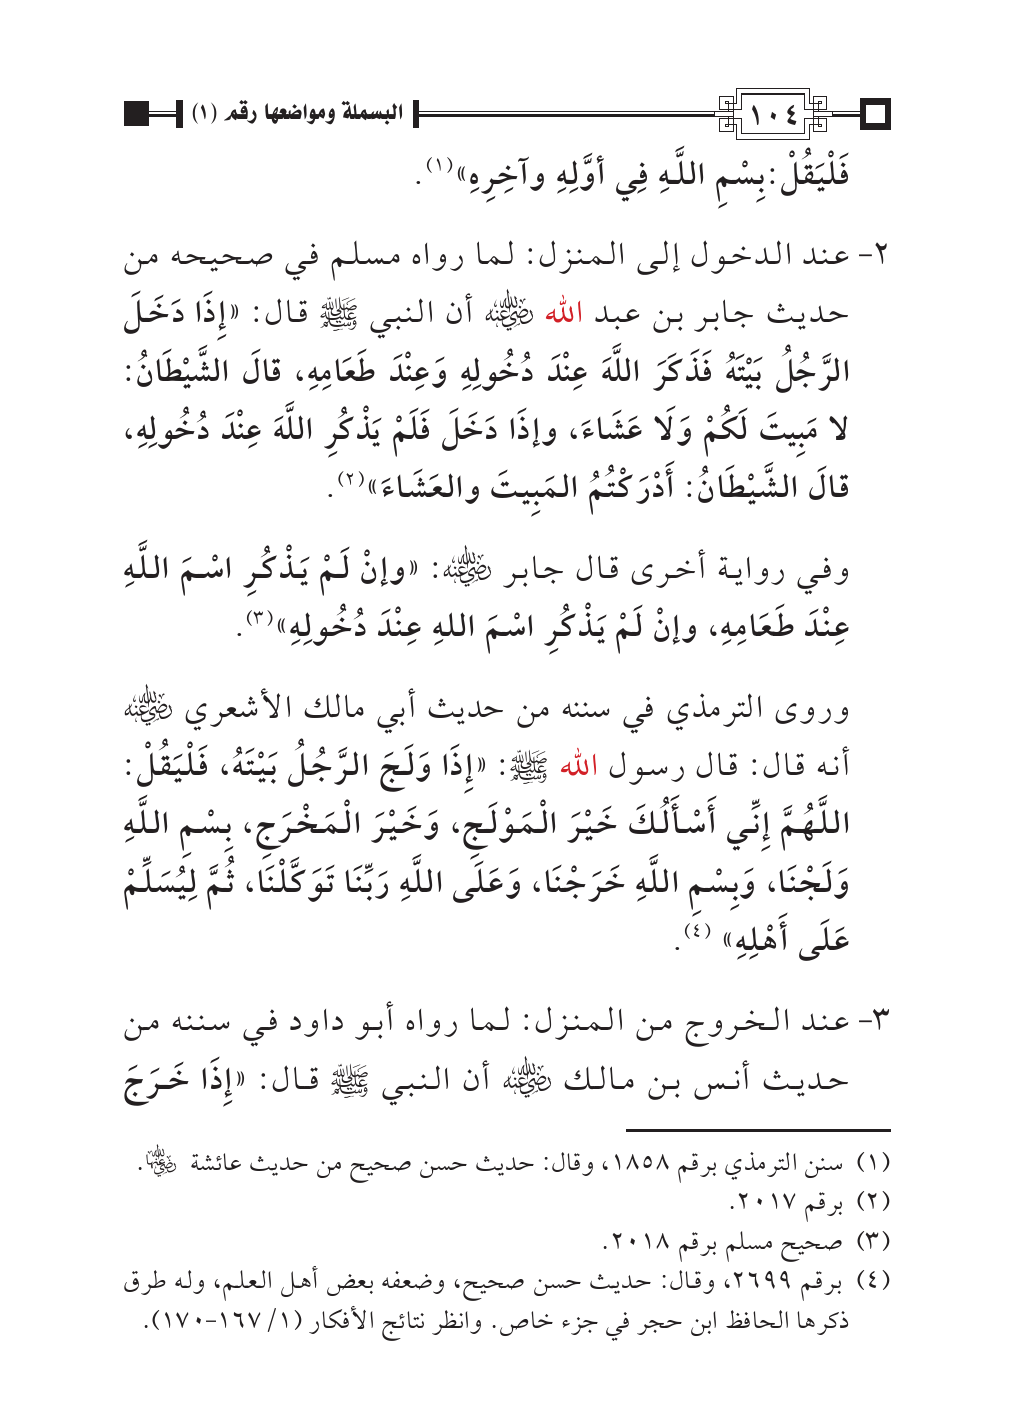 ١٠٤ البسملة ومواضعها رقم (١)
فَلْيَقُلْ: بِسْمِ اللَّهِ فِي أوَّلِهِ وآخِرِهِ»(١).
٢- عند الدخول إلى المنزل: لما رواه مسلم في صحيحه من
حديث جابر بن عبد الله رضي الله عنه أن النبي ﷺ قال: «إِذَا دَخَلَ
الرَّجُلُ بَيْتَهُ فَذَكَرَ اللَّهَ عِنْدَ دُخُولِهِ وَعِنْدَ طَعَامِهِ، قالَ الشَّيْطَانُ:
لا مَبِيتَ لَكُمْ وَلَا عَشَاءَ، وإذَا دَخَلَ فَلَمْ يَذْكُرِ اللَّهَ عِنْدَ دُخُولِهِ،
قالَ الشَّيْطَانُ: أَدْرَكْتُمُ المَبِيتَ والعَشَاءَ»(٢).
وفي رواية أخرى قال جابر رضي الله عنه: «وإنْ لَمْ يَذْكُرِ اسْمَ اللَّهِ
عِنْدَ طَعَامِهِ، وإنْ لَمْ يَذْكُرِ اسْمَ اللهِ عِنْدَ دُخُولِهِ»(٣).
وروى الترمذي في سننه من حديث أبي مالك الأشعري رضي الله عنه
أنه قال: قال رسول الله ﷺ: «إِذَا وَلَجَ الرَّجُلُ بَيْتَهُ، فَلْيَقُلْ:
اللَّهُمَّ إِنِّي أَسْأَلُكَ خَيْرَ الْمَوْلَجِ، وَخَيْرَ الْمَخْرَجِ، بِسْمِ اللَّهِ
وَلَجْنَا، وَبِسْمِ اللَّهِ خَرَجْنَا، وَعَلَى اللَّهِ رَبِّنَا تَوَكَّلْنَا، ثُمَّ لِيُسَلِّمْ
عَلَى أَهْلِهِ» (٤).
٣- عند الخروج من المنزل: لما رواه أبو داود في سننه من
حديث أنس بن مالك رضي الله عنه أن النبي ﷺ قال: «إِذَا خَرَجَ
(١) سنن الترمذي برقم ١٨٥٨، وقال: حديث حسن صحيح من حديث عائشة رضي الله عنها.
(٢) برقم ٢٠١٧.
(٣) صحيح مسلم برقم ٢٠١٨.
(٤) برقم ٢٦٩٩، وقال: حديث حسن صحيح، وضعفه بعض أهل العلم، وله طرق
ذكرها الحافظ ابن حجر في جزء خاص. وانظر نتائج الأفكار (١/ ١٦٧-١٧٠).